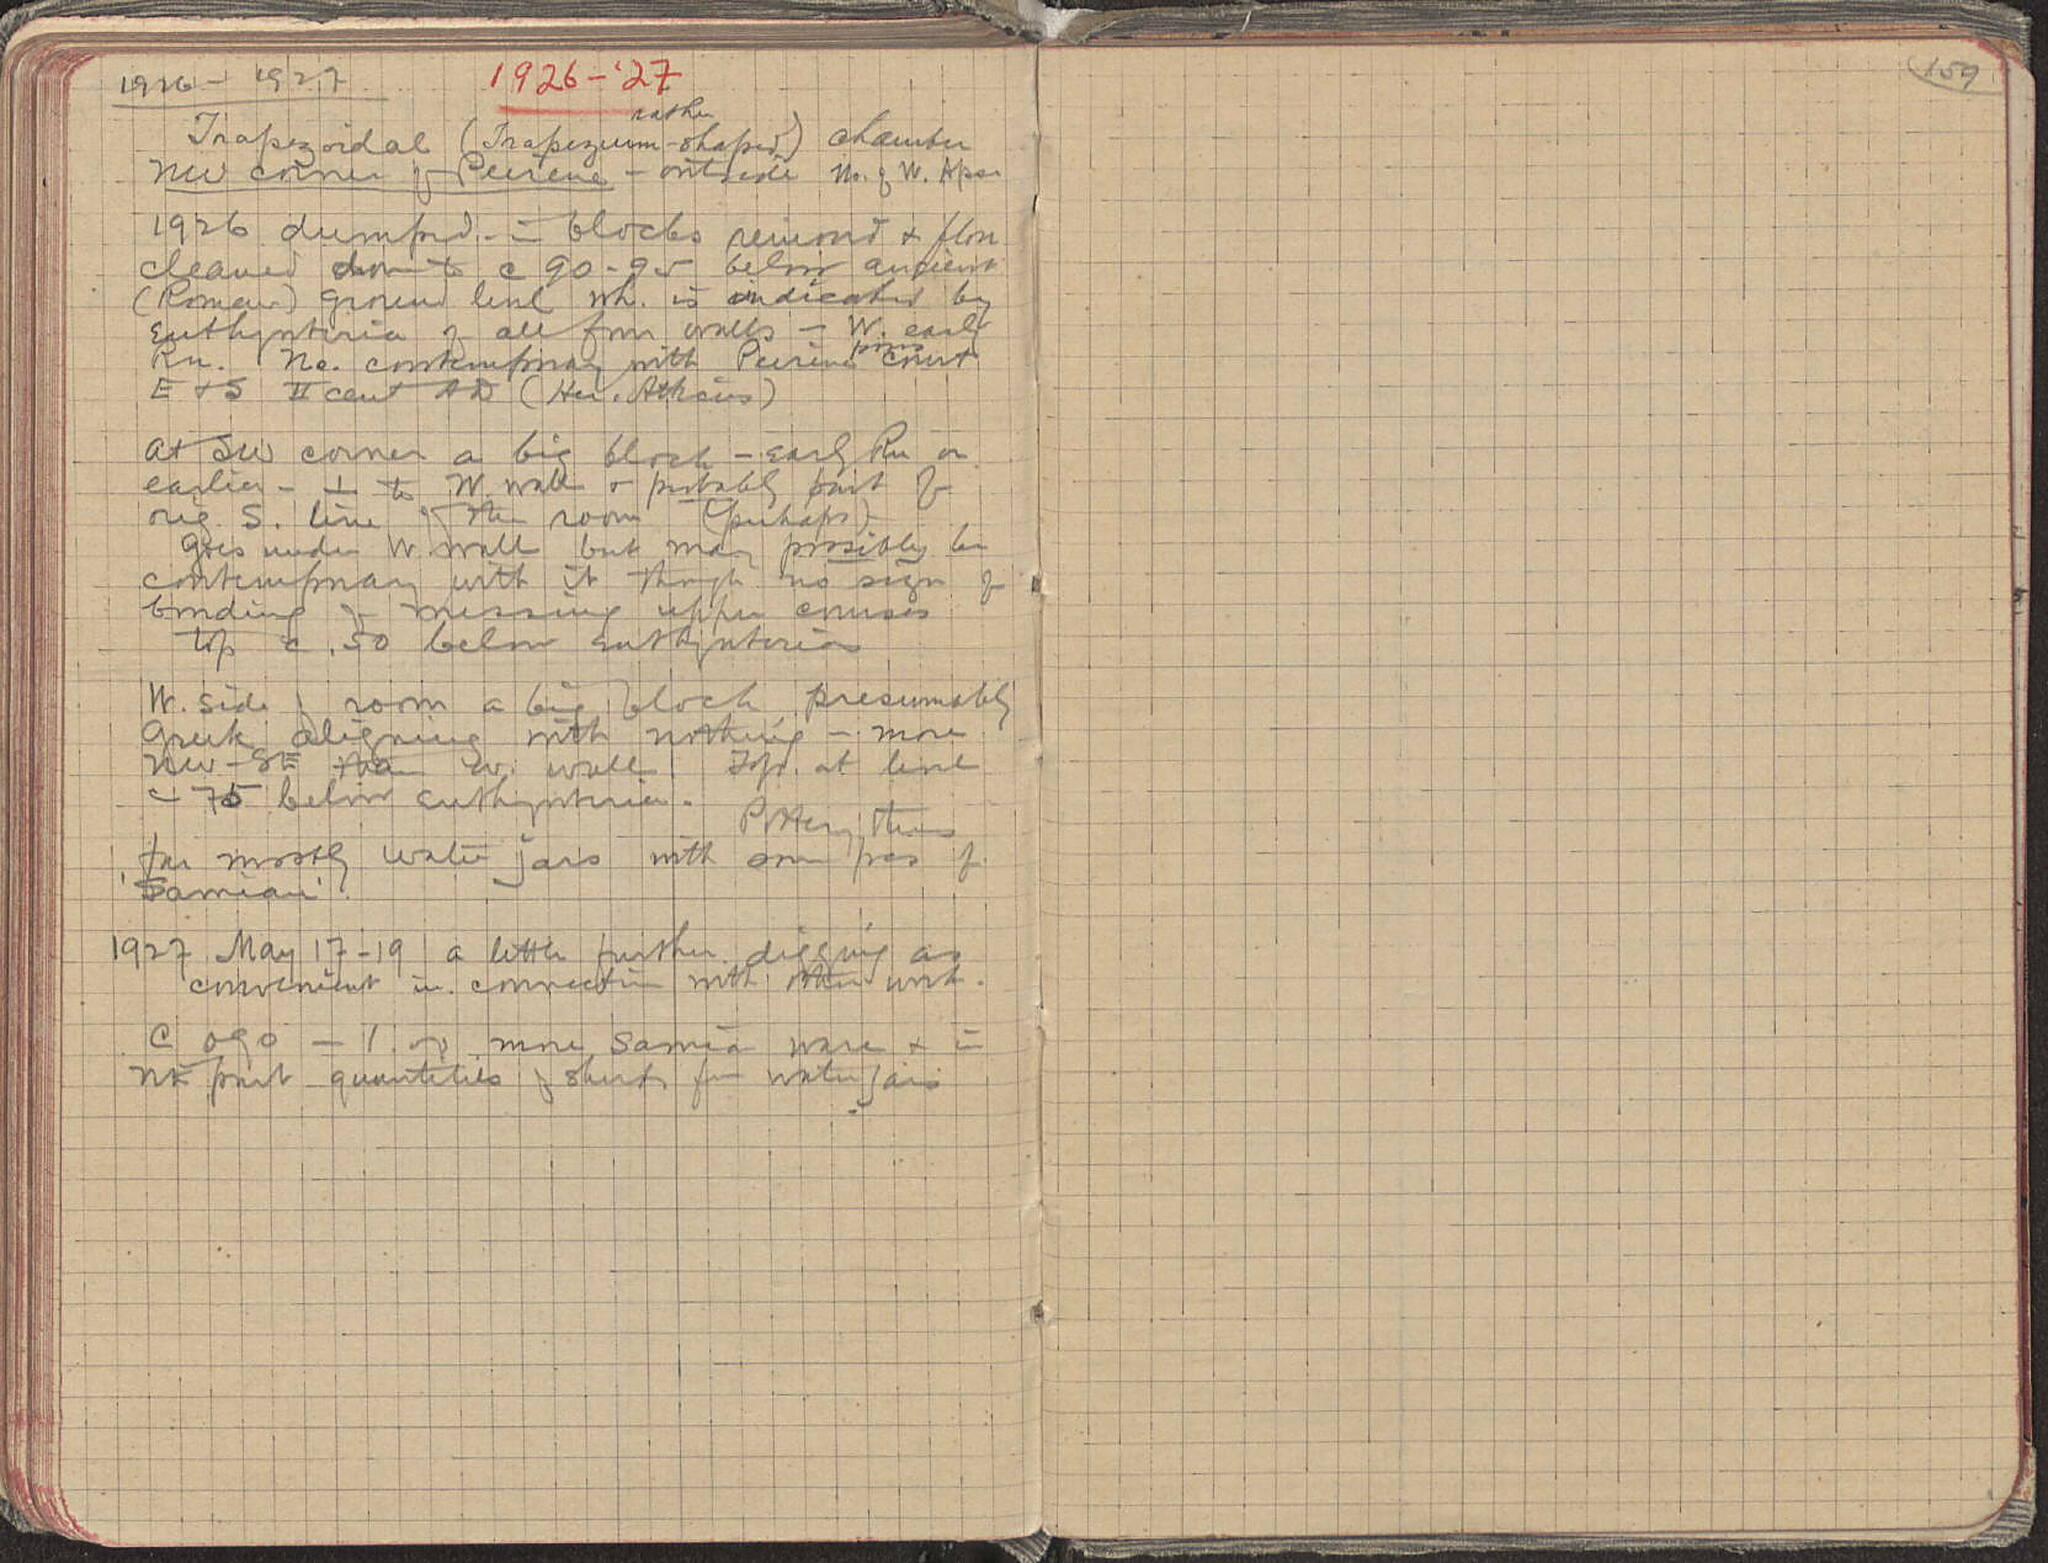 1926 - 1927
1926-'27
rather
Trapezoidal (Trapezium-shaped) chamber
NW corner of Peirene - outside No. of W. Apse
1926 dumped in blocks removed & floor
cleaned down to c 90-95 below ancient
(Roman) ground level wh. is indicated by
Euthynteria of all four walls - W. early
poros
Rn. No. contemporary with Peirene court
E + S II cent AD (Her. Atticus)
At SW corner a big block - early Rn or
earlier - ⊥ to W. wall & probably part of
orig. S. line of the room (perhaps)
Goes under W. wall but may possibly be
contemporary with it though no sign of
bonding & missing upper courses
top c .50 below euthynteria
W. side of room a big block presumably
Greek aligning with nothing - more
NW-SE than W. wall. Top at level
c 75 below euthynteria.
Pottery thus
far mostly water jars with some pcs of
'Samian'.
1927 May 17-19 a little further digging as
convenient in connection with other work.
C 090 - 1. more Samian ware & in
NE part quantities of sherds from water jars
159